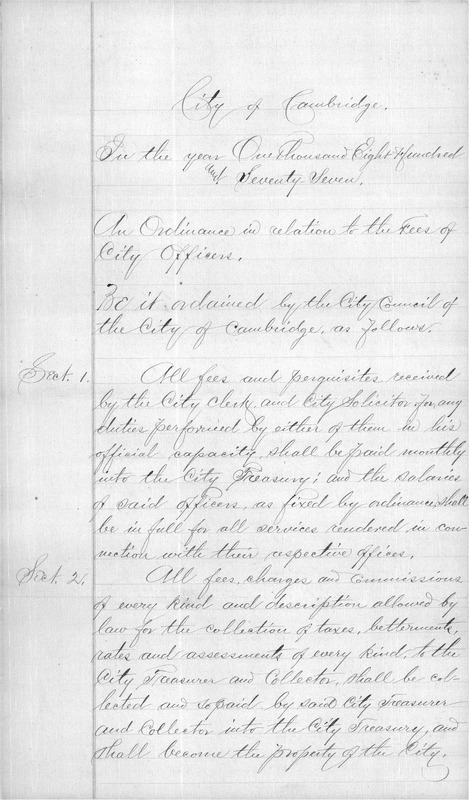 City of Cambridge.
In the year One Thousand Eight Hundred
and Seventy-Seven.
An Ordinance in relation to the Fees of
City Officers.
Be it ordained by the City Council of
the City of Cambridge, as follows.
Sect. 1. All fees and perquisites received
by the City Clerk and City Solicitor for any
duties performed by either of them in his
official capacity, shall be paid monthly
into the City Treasury; and the salaries
of said officers, as fixed by ordinance, shall
be in full for all services rendered in con-
nection with their respective offices.
Sect. 2. All fees, charges and commissions
of every kind and description allowed by
law for the collection of taxes, betterments,
rates and assessments of every kind, to the
City Treasurer and Collector, shall be col-
lected and so paid by said City Treasurer
and Collector into the City Treasury, and
shall become the property of the City.